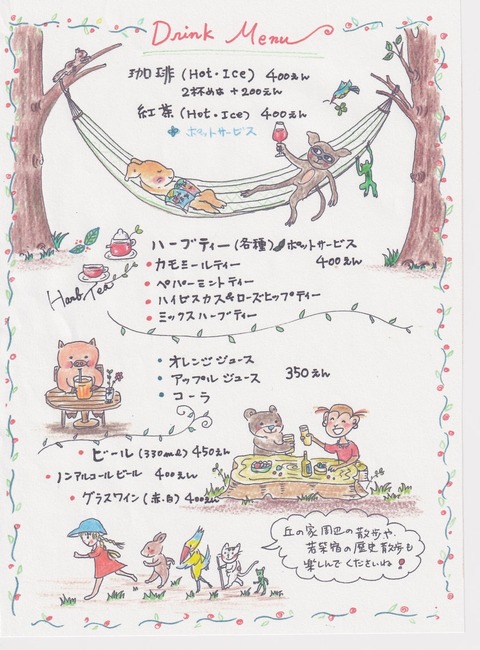 Drink Menu
珈琲 (Hot・Ice) 400えん
2杯めは +200えん
紅茶 (Hot・Ice) 400えん
ポットサービス
ハーブティー (各種) ポットサービス
• カモミールティー 400えん
• ペパーミントティー
• ハイビスカス&ローズヒップティー
• ミックスハーブティー
Herb Tea
• オレンジジュース
• アップルジュース 350えん
• コーラ
• ビール (330ml) 450えん
• ノンアルコールビール 400えん
• グラスワイン (赤・白) 400えん
丘の家周辺の散歩や、
若柴宿の歴史散歩も
楽しんでくださいね!